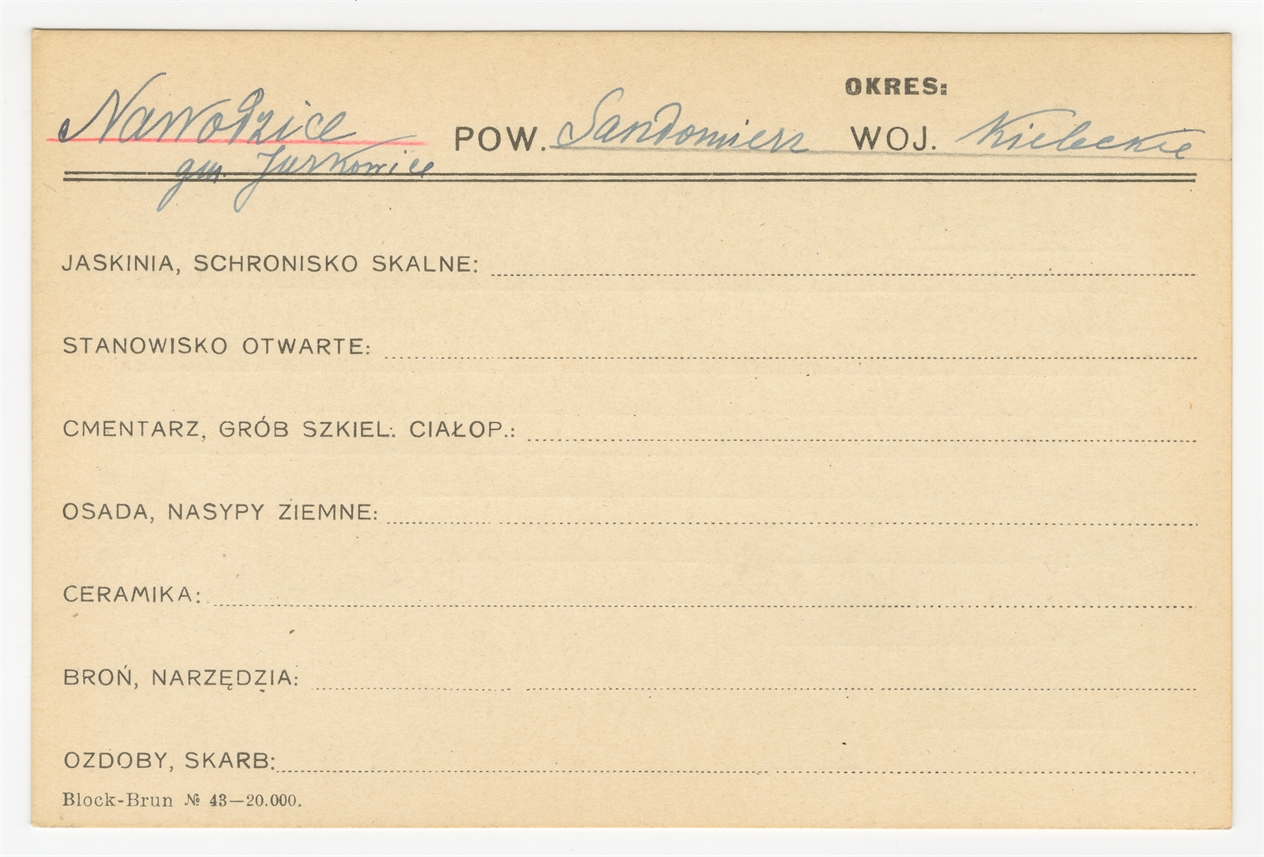 OKRES:
Nawodzice POW. Sandomierz WOJ. Kieleckie
gm. Jurkowice
JASKINIA, SCHRONISKO SKALNE:
STANOWISKO OTWARTE:
CMENTARZ, GRÓB SZKIEL. CIAŁOP.:
OSADA, NASYPY ZIEMNE:
CERAMIKA:
BROŃ, NARZĘDZIA:
OZDOBY, SKARB:
Block-Brun № 43—20.000.